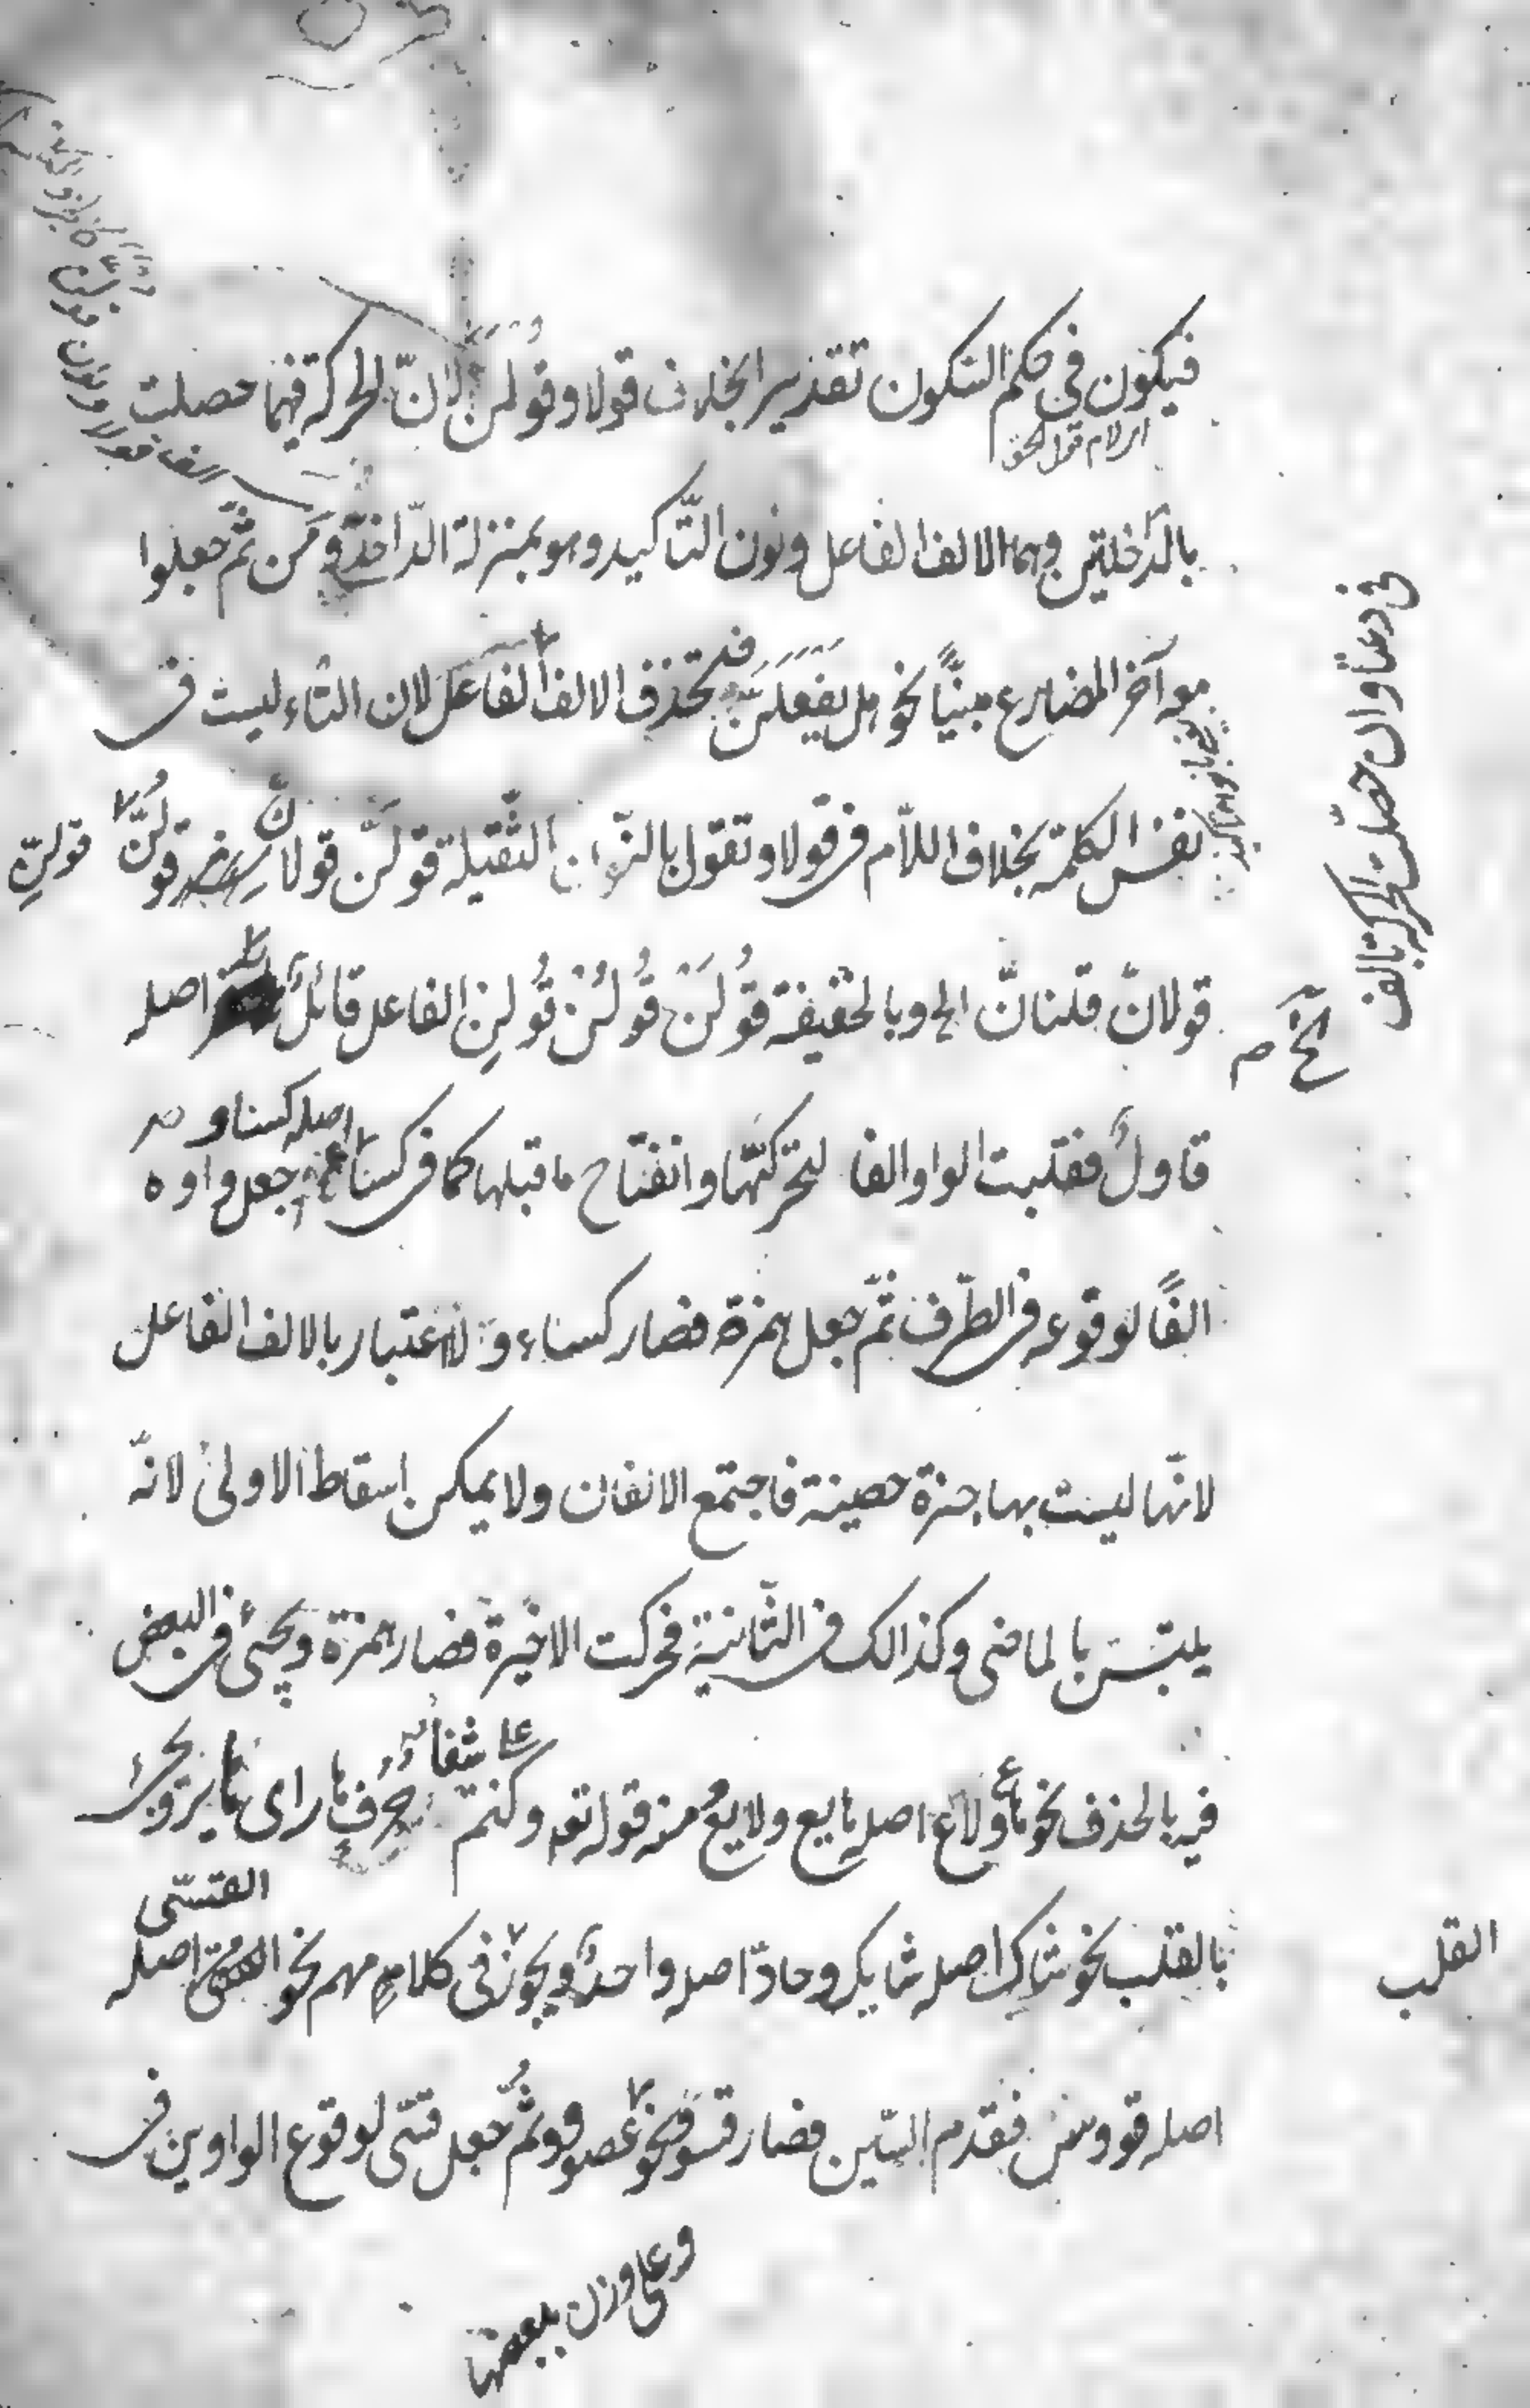 فيكون في حكم السّكون تقديرا بخلاف قولا وقُولَنّ لانّ الحركة فيهما حصلت
بالدّاخلتين وهما الالف الفاعل ونون التّاكيد وهو بمنزلة الدّاخلة ومن ثمّ جعلوا
معه آخر المضارع مبنيّاً نحو هل يَفعَلَنّ فتحذف الالف الفاعل لان التاء ليست في
نفس الكلمة بخلاف اللاّم في قولا وتقول بالنّون الثّقيلة قولَنّ قولانّ قولُنّ قولِنّ
قولانّ قلنانّ الخ وبالخفيفة قُولَنْ قُولُنْ قُولِنْ الفاعل قائلٌ اصله
قاولٌ فقلبت الواو الفا لتحركها وانفتاح ما قبلها كما في كساء اصله كساو جعل واوه
الفًا لوقوعه في الطّرف ثمّ جعل همزة فصار كساء ولا اعتبار بالالف الفاعل
لانّها ليست بحاجزة حصينة فاجتمع الالفان ولا يمكن اسقاط الاولى لانّه
يلتبس بالماضى وكذالك في الثّانية فحركت الاخيرة فصار همزة ويجئ في البعض
فيه بالحذف نحو هاع ولاع اصله هايع ولايع منه قوله تعه وكنتم على شفا جرف هار اى هاير ويجئ
بالقلب نحو شاك اصله شايك وحاد اصله واحد ويجوز في كلامهم نحو القسّى اصله
اصله قووس فقدم السّين فصار قسوو نحو عصوو ثمّ جعل قسّى لوقوع الواوين في
وعلى وزن
في دعتا وان حصلت الحركة بالف
القلب